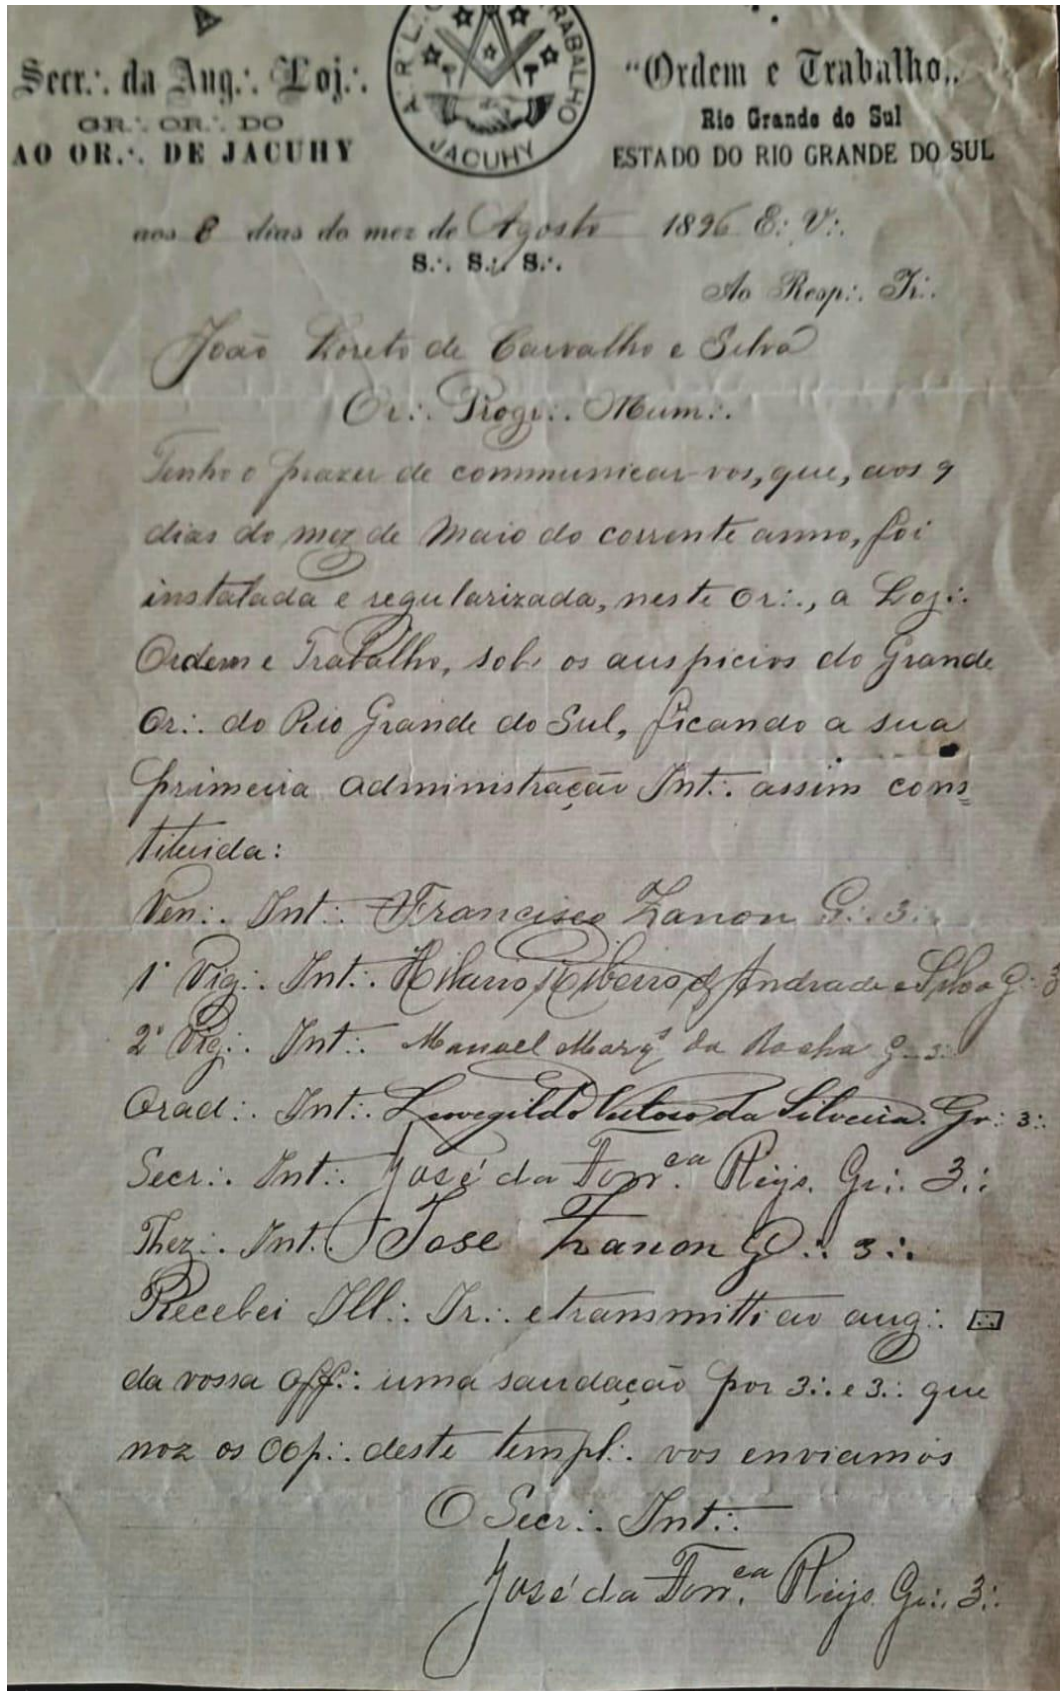 Secr.·. da Aug.·. Loj.·.
GR.·. OR.·. DO
AO OR.·. DE JACUHY
A.·. R.·. L.·. O TRABALHO
JACUHY
"Ordem e Trabalho„
Rio Grande do Sul
ESTADO DO RIO GRANDE DO SUL
aos 8 dias do mez de Agosto 1896 E.·. V.·.
S.·. S.·. S.·.
Ao Resp.·. Ir.·.
João Loreto de Carvalho e Silva
Or.·. Progr.·. Mum.·.
Tenho o prazer de communicar-vos, que, aos 9
dias do mez de Maio do corrente anno, foi
instalada e regularizada, neste Or.·., a Loj.·.
Ordem e Trabalho, sob os auspicios do Grande
Or.·. do Rio Grande do Sul, ficando a sua
primeira administração Int.·. assim cons=
tituida:
Ven.·. Int.·. Francisco Zanon G.·. 3.·.
1º Vig.·. Int.·. Hilario Ribeiro d'Andrade e Silva G.·. 3
2º Vig.·. Int.·. Manoel Marqs da Rocha G.·. 3.·.
Orad.·. Int.·. Leovegildo Velloso da Silveira. Gr.·. 3.·.
Secr.·. Int.·. José da Fonca Reijs. Gr.·. 3.·.
Thez.·. Int.·. Jose Zanon G.·. 3.·.
Recebei Ill.·. Ir.·. e transmitti ao aug.·.
da vossa Off.·. uma saudação por 3.·. e 3.·. que
noz os OOp.·. deste templ.·. vos enviamos
O Secr.·. Int.·.
José da Fonca Reijs. Gr.·. 3.·.